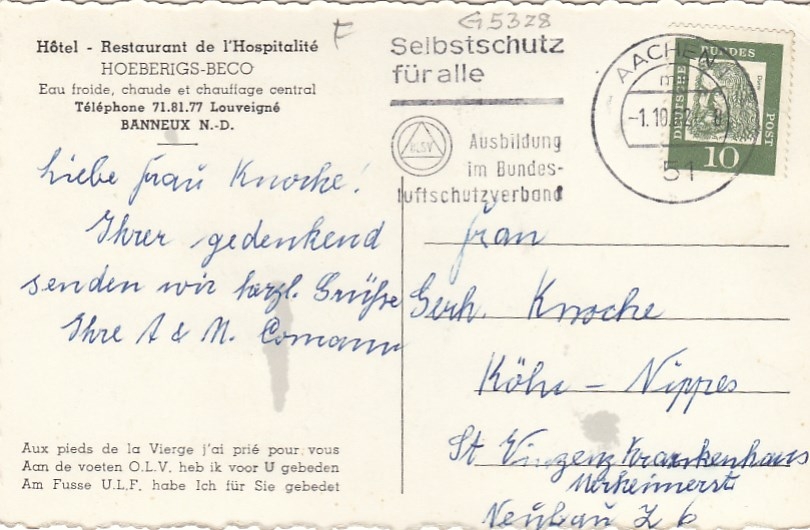 Hôtel - Restaurant de l'Hospitalité
HOEBERIGS-BECO
Eau froide, chaude et chauffage central
Téléphone 71.81.77 Louveigné
BANNEUX N.-D.
F
G5328
Selbstschutz
für alle
BLSV
Ausbildung
im Bundes-
luftschutzverband
AACHEN
-1.10.
51
DEUTSCHE BUNDESPOST
Dürer
10
Liebe Frau Knoche!
Ihrer gedenkend
senden wir herzl. Grüße
Ihre A & M. Comann
Frau
Gerh. Knoche
Köln - Nippes
St Vinzenz Krankenhaus
Merheimerstr
Neubau Z 6
Aux pieds de la Vierge j'ai prié pour vous
Aan de voeten O.L.V. heb ik voor U gebeden
Am Fusse U.L.F. habe Ich für Sie gebedet